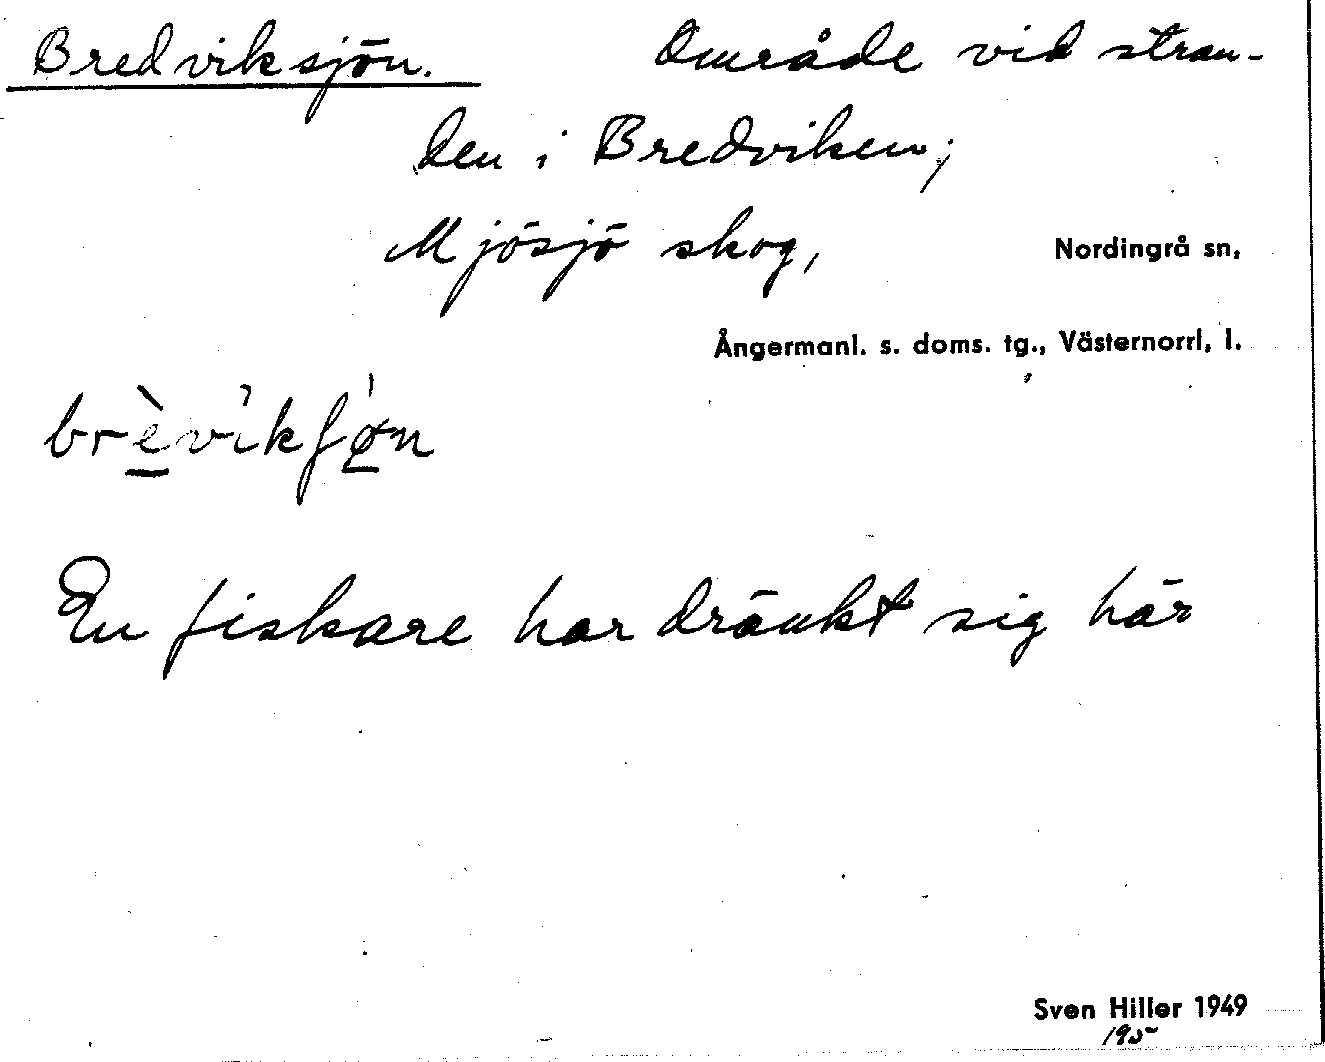 Bredviksjön. Område vid stran-
den i Bredviken;
Mjösjö skog, Nordingrå sn,
Ångermanl. s. doms. tg., Västernorrl, l.
brèvikʃøn
En fiskare har dränkt sig här
Sven Hiller 1949